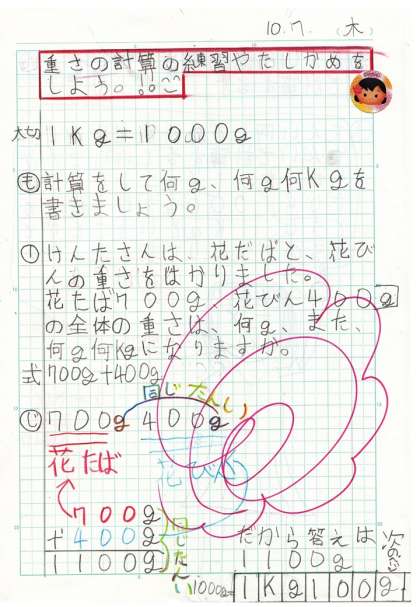 10.7. (木)
重さの計算の練習やたしかめを
しよう。
大切 1Kg=1000g
も 計算をして何g、何g何Kgを
書きましょう。
① けんたさんは、花だばと、花び
んの重さをはかりました。
花たば700g 花びん400g
の全体の重さは、何g、また、
何g何Kgになりますか。
式 700g+400g
同じたんい
じ 700g 400g
花たば 花びん
700g
+400g
1100g
同じたんい
だから答えは
1100g
1000g=1Kg100g